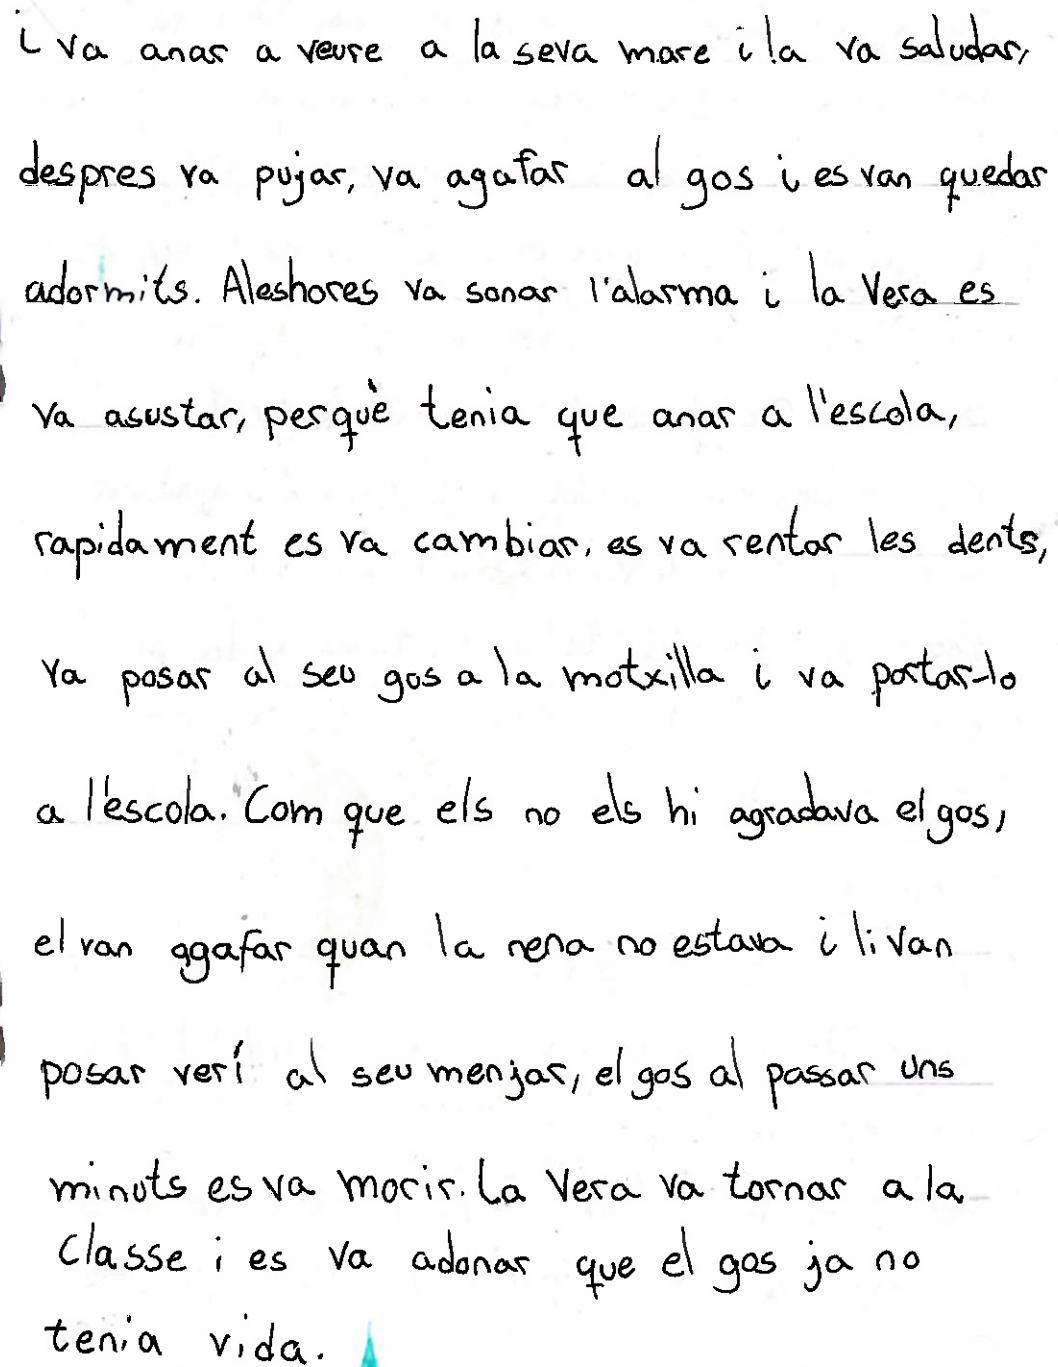 i va anar a veure a la seva mare i la va saludar,
despres va pujar, va agafar al gos i es van quedar
adormits. Aleshores va sonar l'alarma i la Vera es
va asustar, perquè tenia que anar a l'escola,
rapidament es va cambiar, es va rentar les dents,
va posar al seu gos a la motxilla i va portar-lo
a l'escola. Com que els no els hi agradava el gos,
el van agafar quan la nena no estava i li van
posar verí al seu menjar, el gos al passar uns
minuts es va morir. La Vera va tornar a la
classe i es va adonar que el gos ja no
tenia vida.